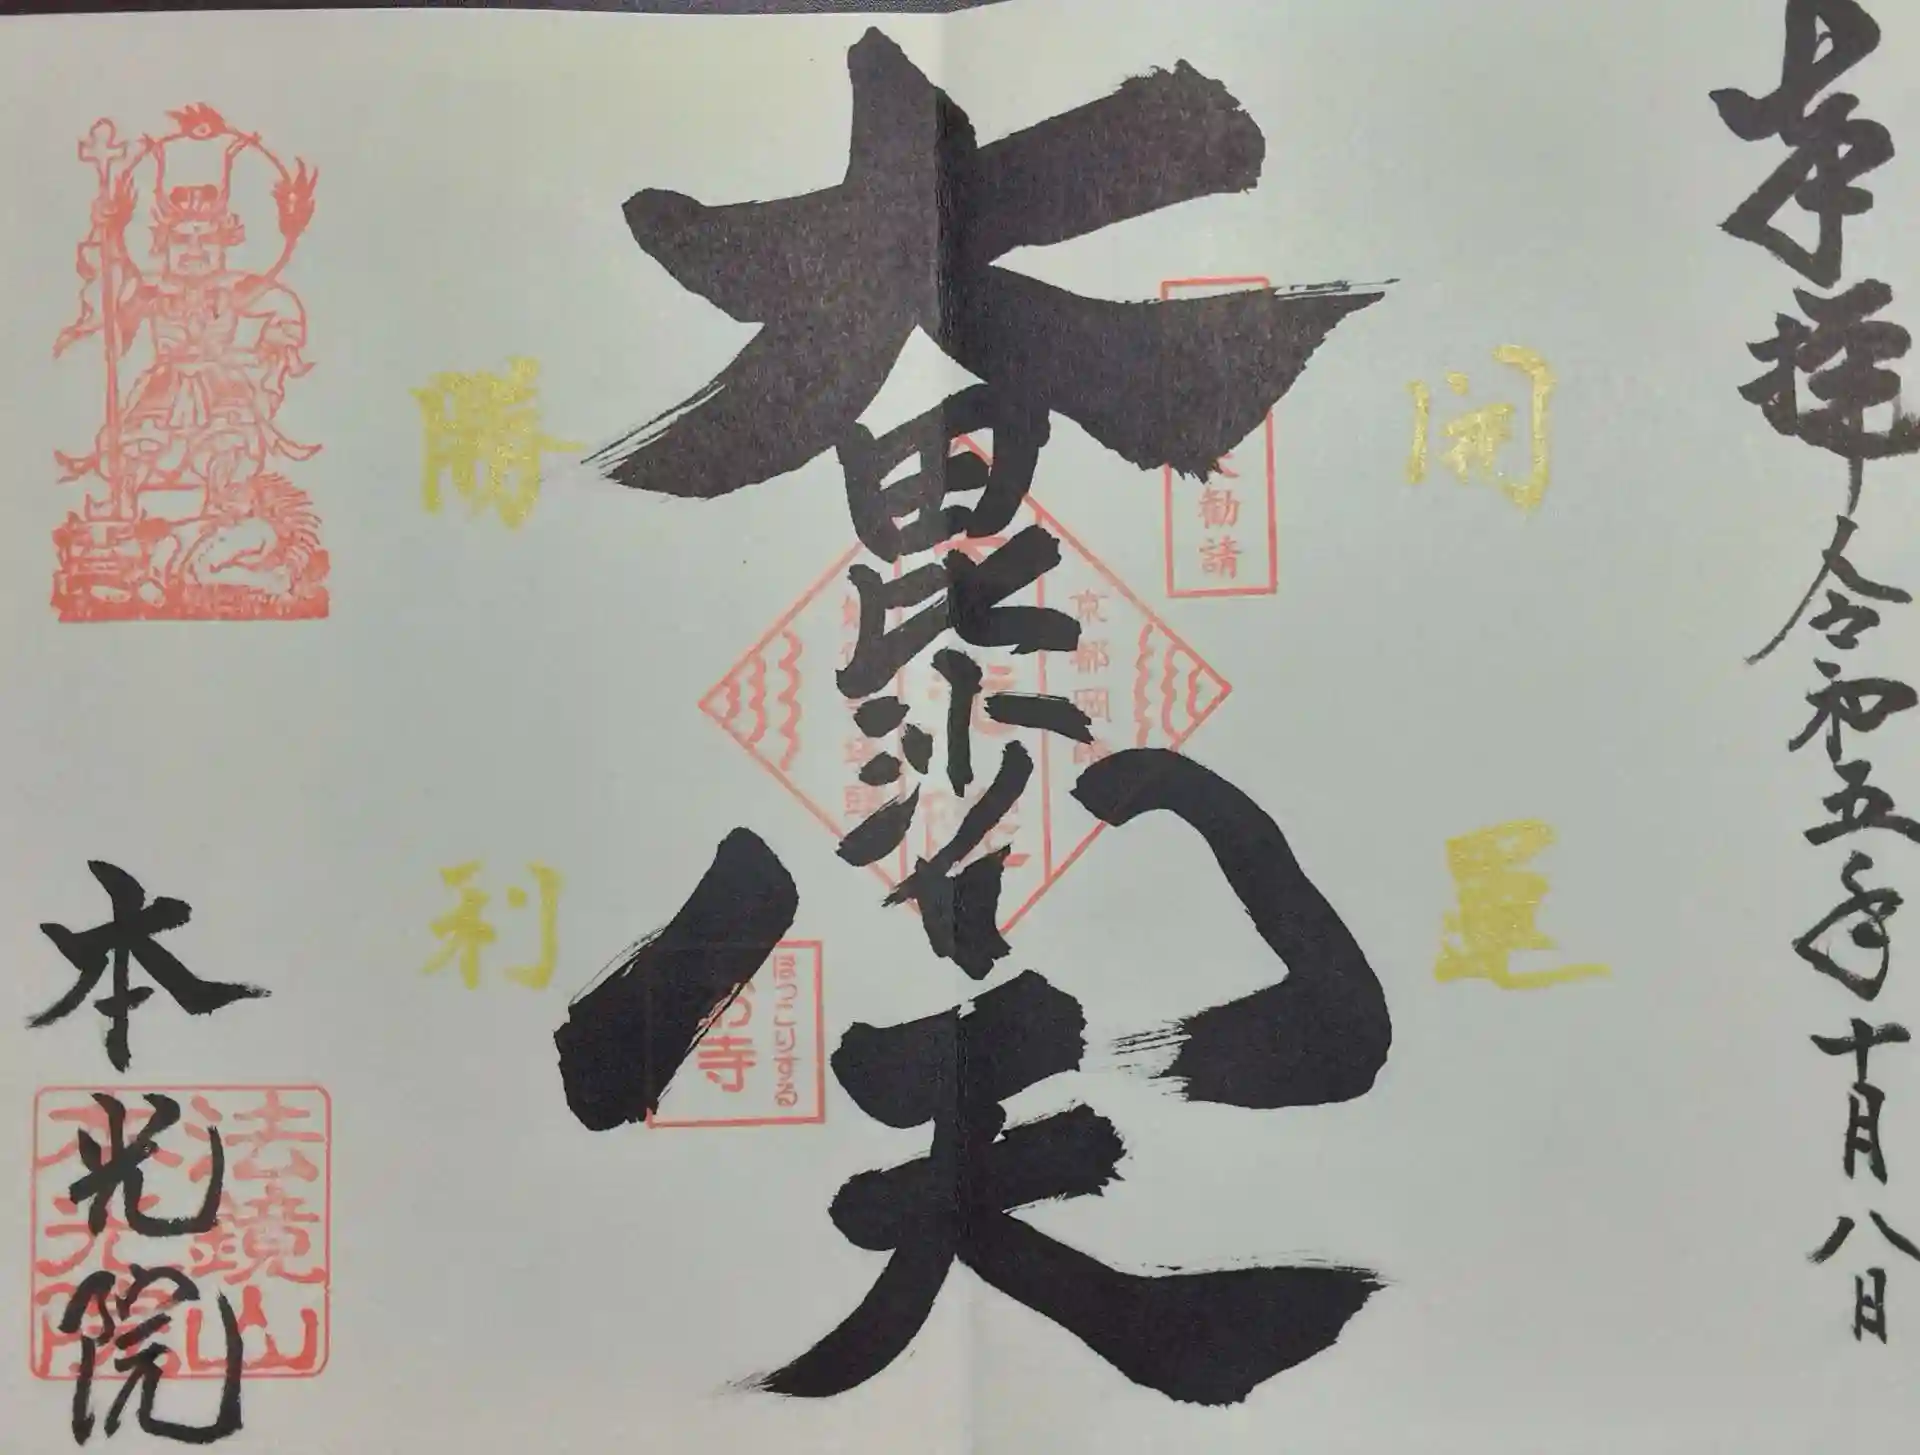 奉拝
令和五年十月八日
開運
大毘沙門天
勝利
勧請
京都岡崎
寺
ほっこりする
本光院
法鏡山
本光院